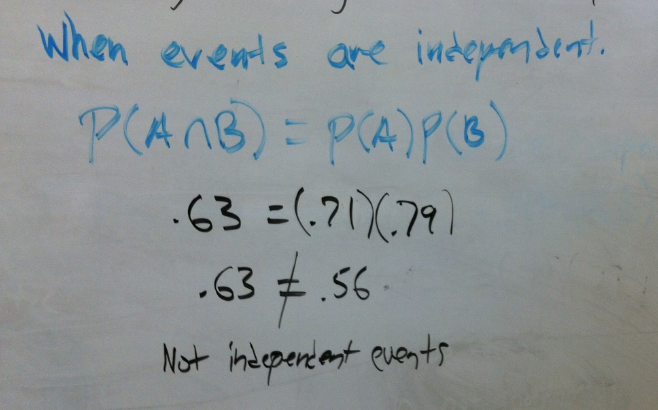 When events are independent.
P(A∩B) = P(A)P(B)
.63 = (.71)(.79)
.63 ≠ .56
Not independent events